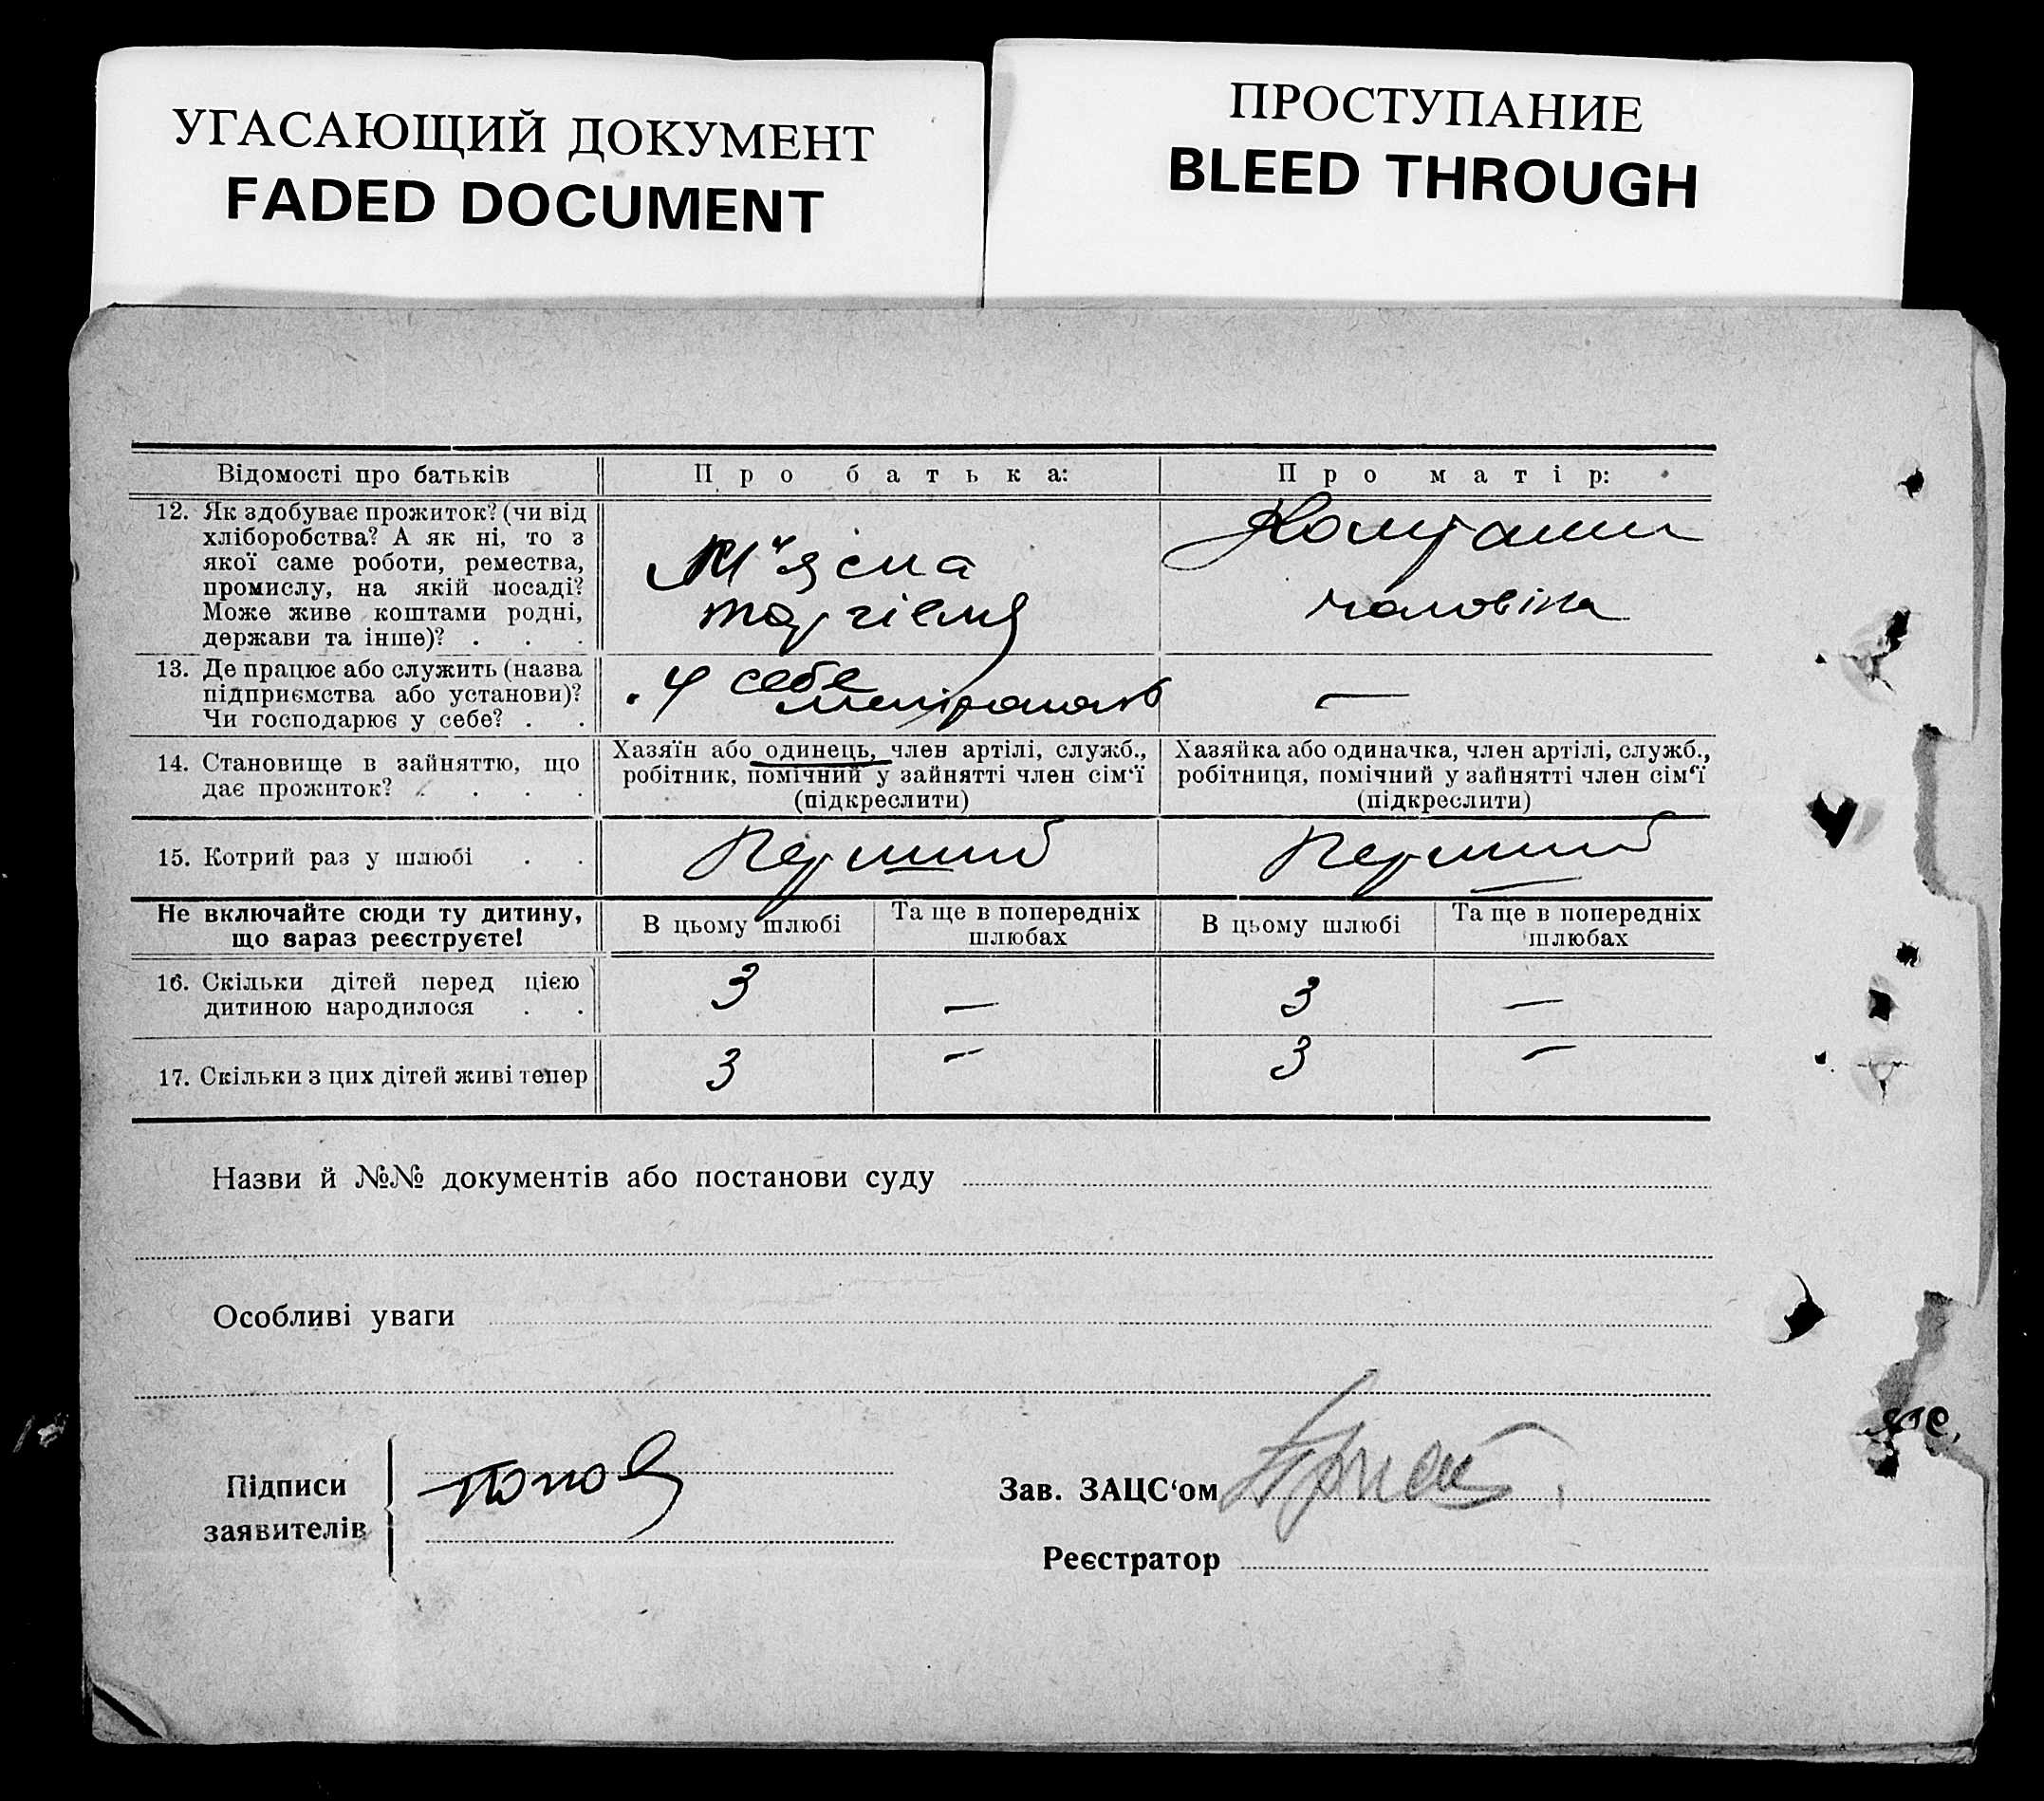 УГАСАЮЩИЙ ДОКУМЕНТ
FADED DOCUMENT
ПРОСТУПАНИЕ
BLEED THROUGH
Відомості про батьків
Про батька:
Про матір:
12. Як здобуває прожиток? (чи від
хліборобства? А як ні, то з
якої саме роботи, ремества,
промислу, на якій посаді?
Може живе коштами родні,
держави та інше)? . . .
М'ясна
торгівля
Коштами
чоловіка
13. Де працює або служить (назва
підприємства або установи)?
Чи господарює у себе? . .
У себе
—
14. Становище в зайняттю, що
дає прожиток? . . . .
Хазяїн або одинець, член артілі, служб.,
робітник, помічний у зайнятті член сім‘ї
(підкреслити)
Хазяйка або одиначка, член артілі, служб.,
робітниця, помічний у зайнятті член сім‘ї
(підкреслити)
15. Котрий раз у шлюбі . .
Перший
Перший
Не включайте сюди ту дитину,
що зараз реєструєте!
В цьому шлюбі
Та ще в попередніх
шлюбах
В цьому шлюбі
Та ще в попередніх
шлюбах
16. Скільки дітей перед цією
дитиною народилося . .
3 — 3 —
17. Скільки з цих дітей живі тепер
3 — 3 —
Назви й №№ документів або постанови суду
Особливі уваги
Підписи
заявителів
Зав. ЗАЦС‘ом
Реєстратор